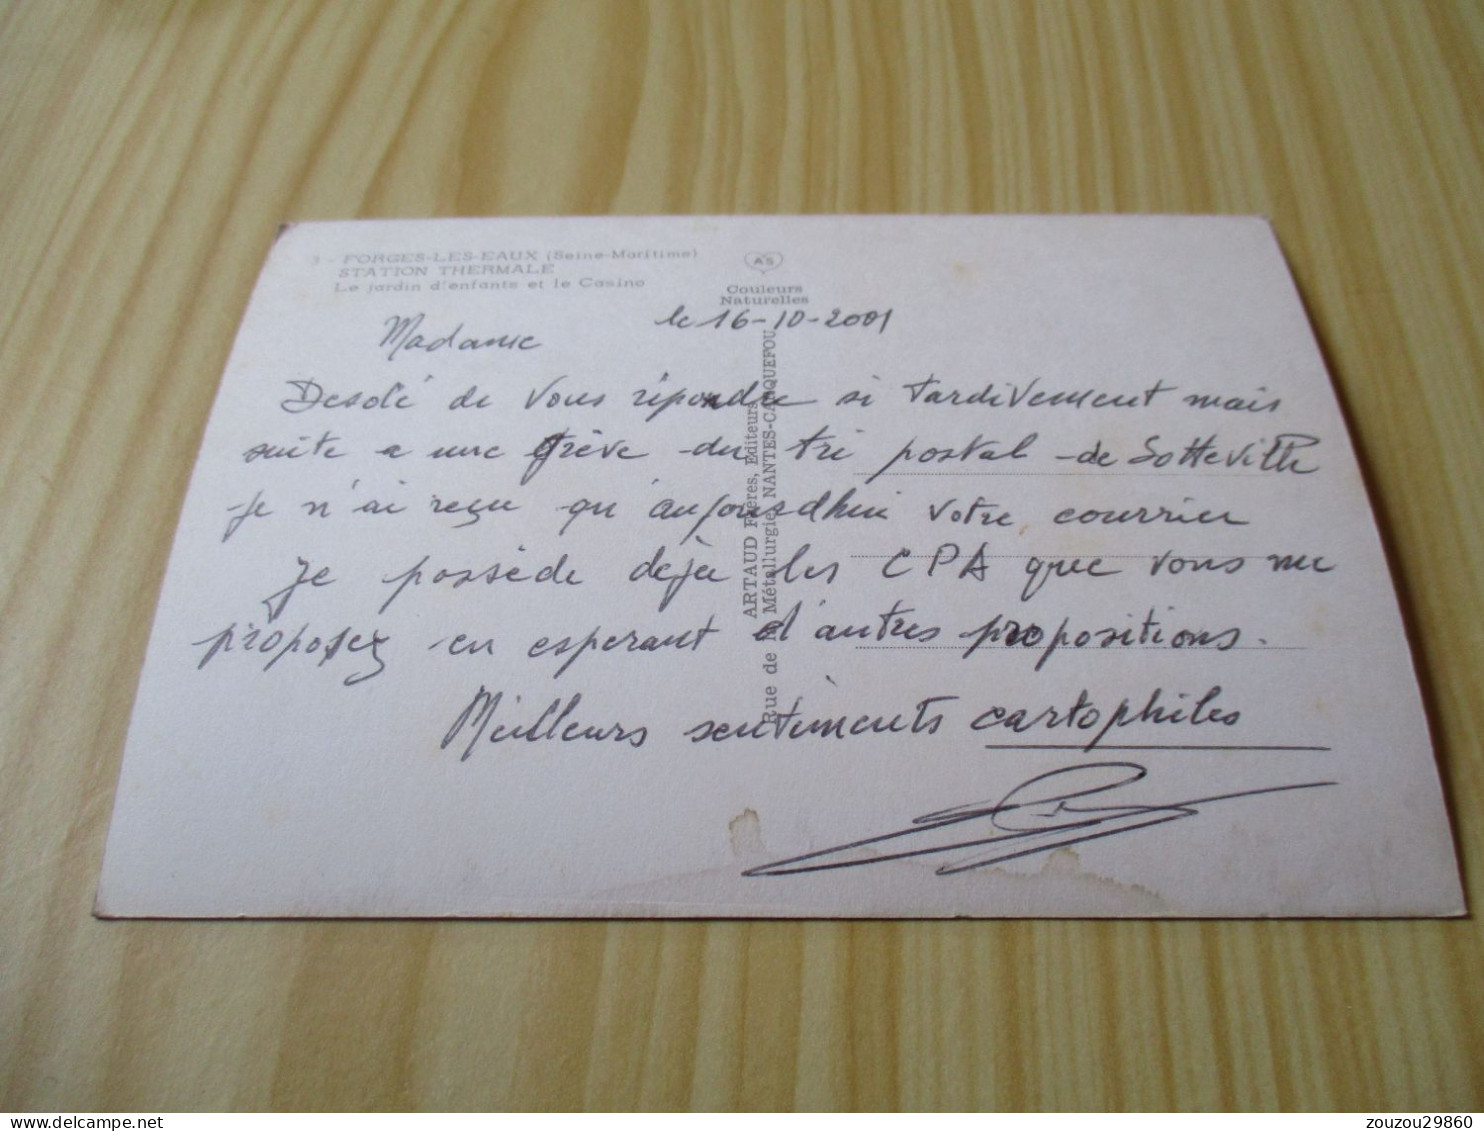 3 - FORGES-LES-EAUX (Seine-Maritime)
STATION THERMALE
Le jardin d'enfants et le Casino
AS
Couleurs
Naturelles
ARTAUD Frères, Editeurs
Rue de la Métallurgie, NANTES-CARQUEFOU
le 16-10-2001
Madame
Desolé de vous répondre si tardivement mais
suite a une grève du tri postal de Sotteville
je n'ai reçu qu'aujourd'hui votre courrier
Je possède déja les CPA que vous me
proposez en esperant d'autres propositions.
Meilleurs sentiments cartophiles
zouzou29860
delcampe.net